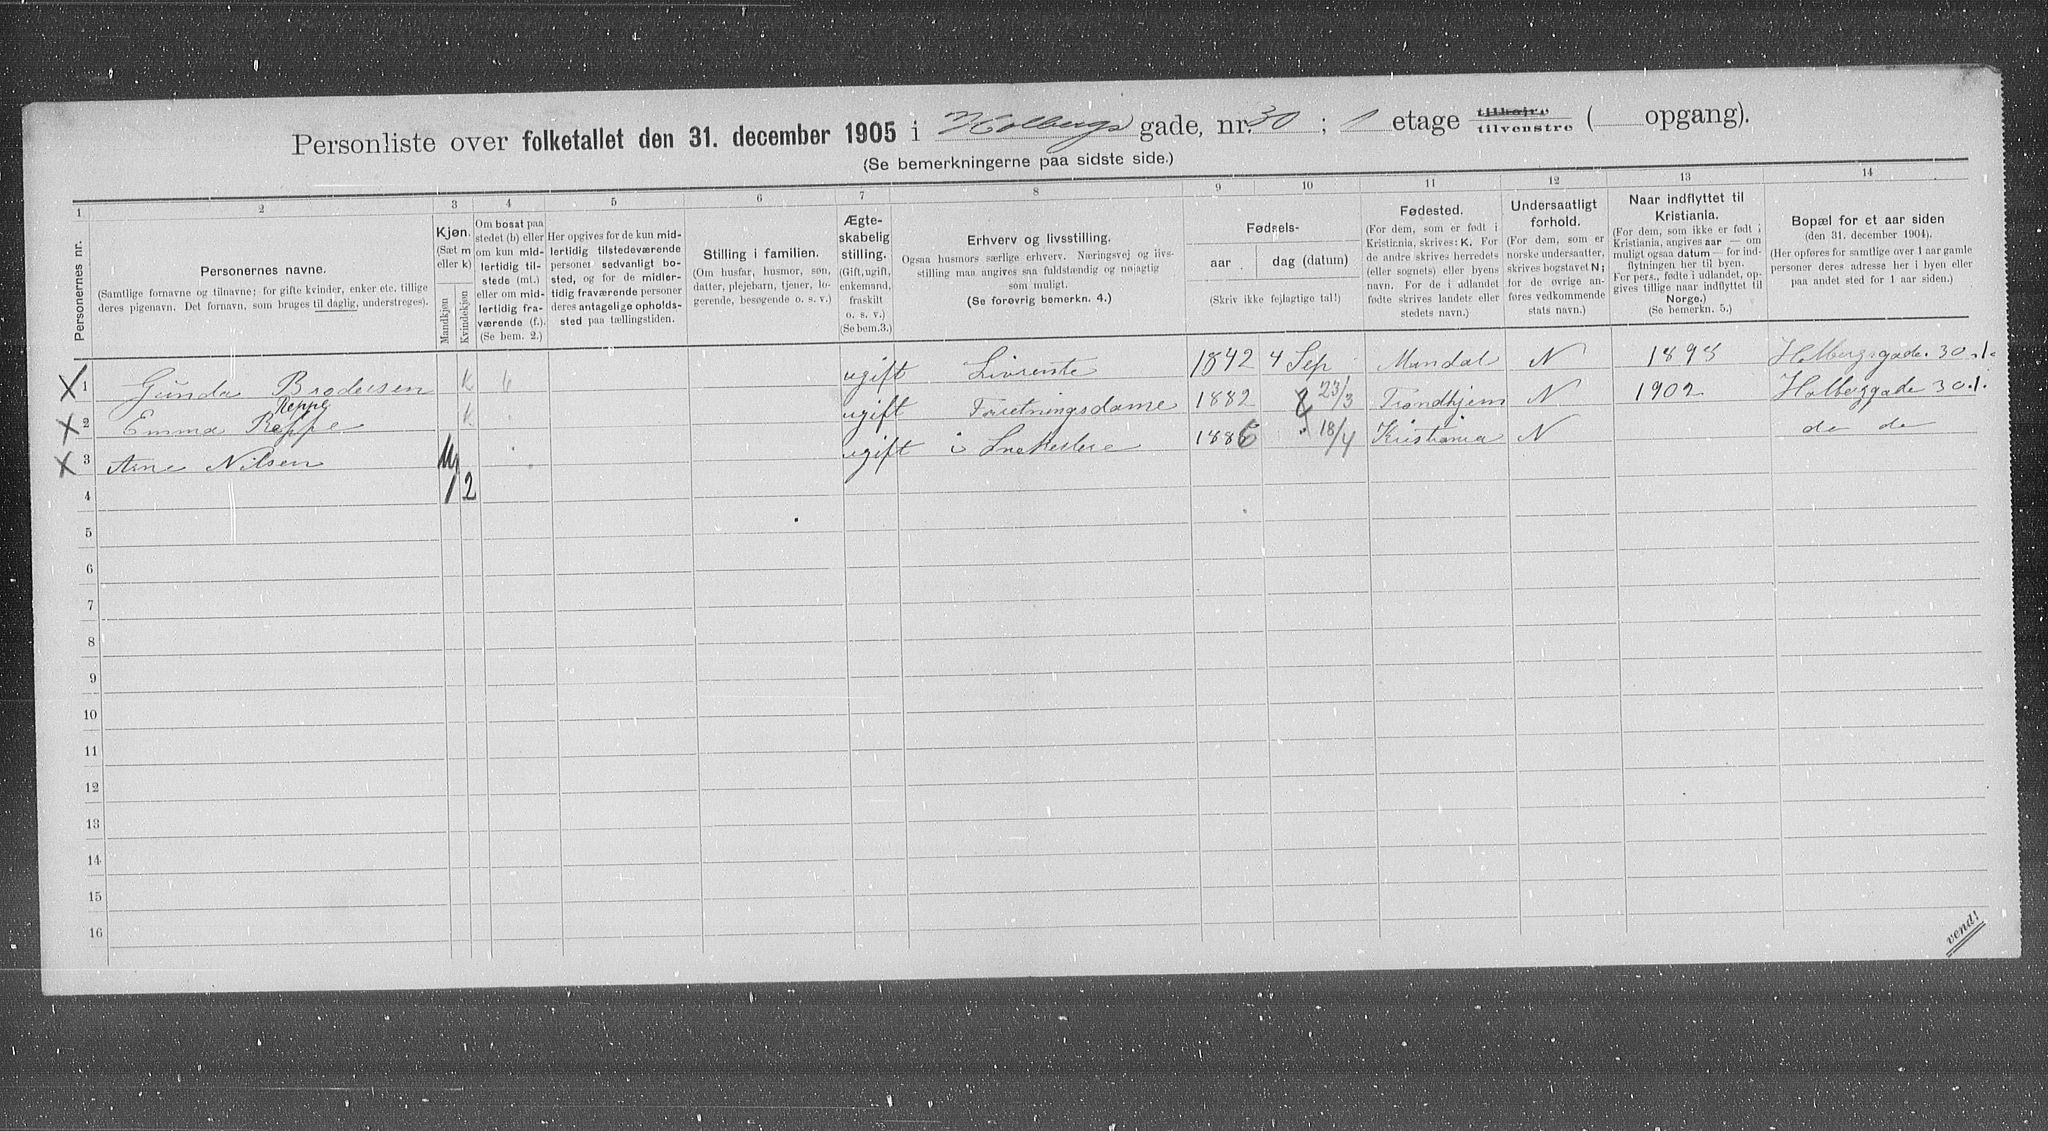 Personliste over folketallet den 31. december 1905 i Holbergs gade, nr. 30 ; 1 etage tilhøjre tilvenstre ( opgang).
(Se bemerkningerne paa sidste side.)
1 2 3 4 5 6 7 8 9 10 11 12 13 14
Personernes nr.
Personernes navne.
(Samtlige fornavne og tilnavne; for gifte kvinder, enker etc. tillige
deres pigenavn. Det fornavn, som bruges til daglig, understreges).
Kjøn.
(Sæt m
eller k)
Mandkjøn
Kvindekjøn
Om bosat paa
stedet (b) eller
om kun mid-
lertidig til-
stede (mt.)
eller om mid-
lertidig fra-
værende (f.).
(Se bem. 2.)
Her opgives for de kun mid-
lertidig tilstedeværende
personer sedvanligt bo-
sted, og for de midler-
tidig fraværende personer
deres antagelige opholds-
sted paa tællingstiden.
Stilling i familien.
(Om husfar, husmor, søn,
datter, plejebarn, tjener, lo-
gerende, besøgende o. s. v.)
Ægte-
skabelig
stilling.
(Gift, ugift,
enkemand,
fraskilt
o. s. v.)
(Se bem. 3.)
Erhverv og livsstilling.
Ogsaa husmors særlige erhverv. Næringsvej og livs-
stilling maa angives saa fuldstændig og nøjagtig
som muligt.
(Se forøvrig bemerkn. 4.)
Fødsels-
aar
dag (datum)
(Skriv ikke fejlagtige tal!)
Fødested.
(For dem, som er født i
Kristiania, skrives: K. For
de andre skrives herredets
(eller sognets) eller byens
navn. For de i udlandet
fødte skrives landets eller
stedets navn.)
Undersaatligt
forhold.
(For dem, som er
norske undersaatter,
skrives bogstavet N;
for de øvrige an-
føres vedkommende
stats navn.)
Naar indflyttet til
Kristiania.
(For dem, som ikke er født i
Kristiania, angives aar — om
muligt ogsaa datum — for ind-
flytningen her til byen.
For pers., fødte i udlandet, op-
gives tillige naar indflyttet til
Norge.)
(Se bemerkn. 5.)
Bopæl for et aar siden
(den 31. december 1904).
(Her opføres for samtlige over 1 aar gamle
personer deres adresse her i byen eller
paa andet sted for 1 aar siden.)
X 1 Gunda Brodersen k b ugift Livrente 1842 4 Sep Mandal N 1898 Holbergsgade 30.1.
Reppe
X 2 Emma Reppe k ugift Forretningsdame 1882 23/3 Trondhjem N 1902 Holberggade 30.1.
X 3 Arne Nilsen M ugift i Snekerlere 1886 18/4 Kristiania N do do
4 1 2
5
6
7
8
9
10
11
12
13
14
15
16
vend!